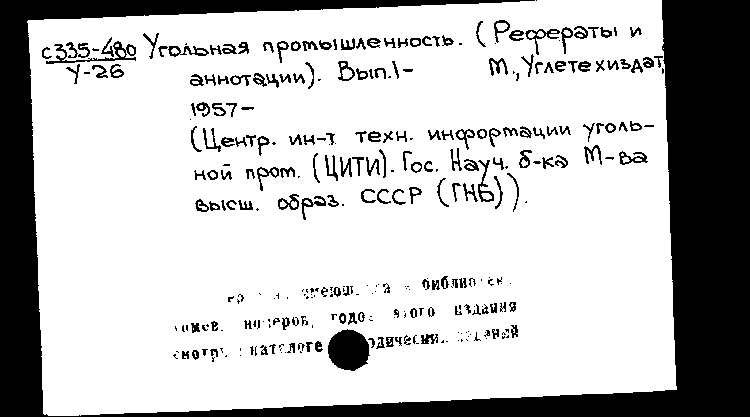 с335-480 Угольная промышленность. (Рефераты и
У-26 аннотации). Вып.1- М., Углетехиздат,
1957-
(Центр. ин-т техн. информации уголь-
ной пром. (ЦИТИ). Гос. Науч. б-ка М-ва
высш. образ. СССР (ГНБ)).
библиотек
томов, номеров, годов этого издания
смотри каталоге